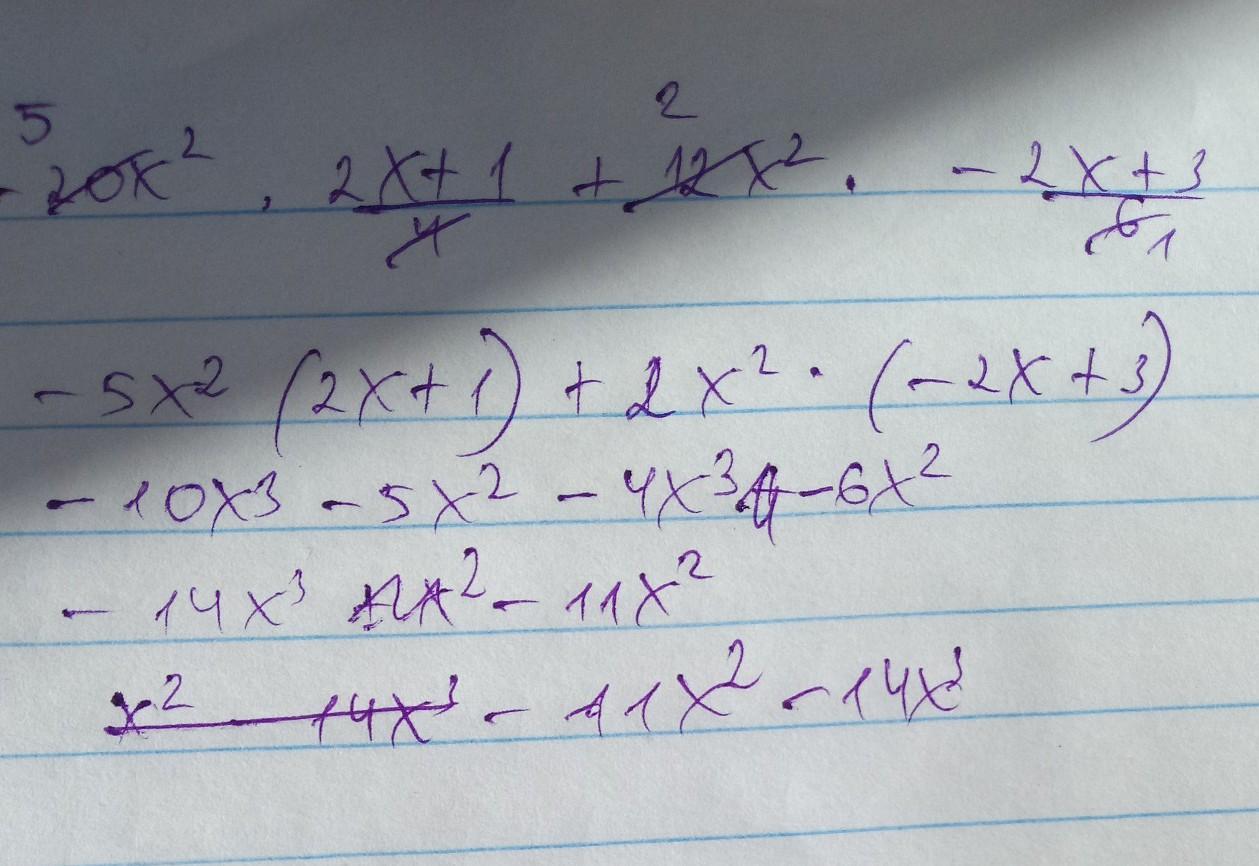 5 2
- 20x² · 2x+1/4 + 12x² · -2x+3/6 1
- 5x² (2x+1) + 2x² · (-2x+3)
- 10x3 - 5x² - 4x³ - 6x²
- 14x³ - 11x²
x² - 14x³ - 11x² - 14x³